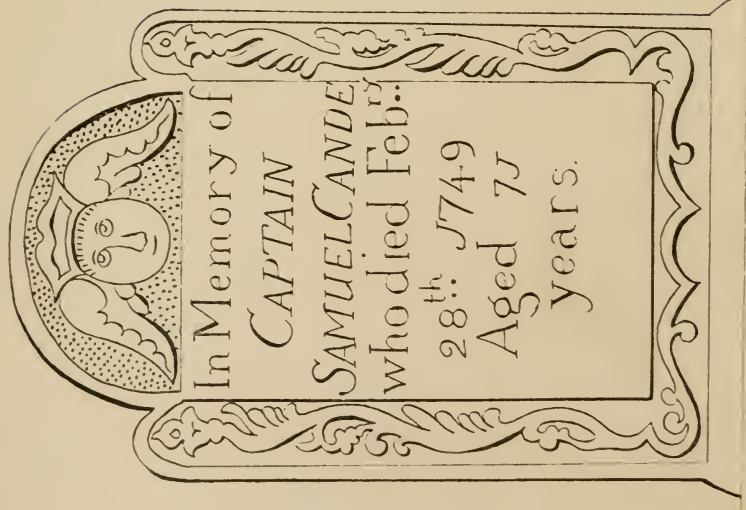 In Memory of
CAPTAIN
SAMUEL CANDE
who died Feb.ry
28th: J749
Aged 7J
years.